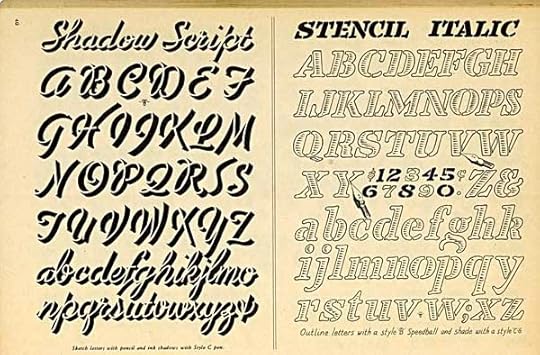 Shadow Script
ABCDEF
GHIJKLM
NOPQRSS
TUVWXYZ
abcdefghikjlmo
npqrsutowxyz
Sketch letters with pencil and ink shadows with Style C pen.
8
STENCIL ITALIC
ABCDEFGH
IJKLMNOPS
QRSTUVW
XY $12345¢ Z&
67890.
abcdefghk
ijlmnopqy
rstuv·w;xz
Outline letters with a style 'B' Speedball and shade with a style 'C-6